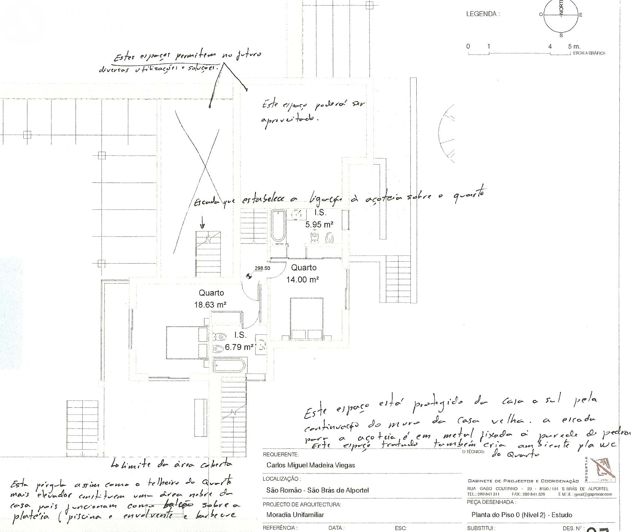 LEGENDA :
NORTE
S
0 1 4 5 m.
ESCALA GRÁFICA
Estes espaços permitem no futuro
diversas utilizações e soluções.
Este espaço poderá ser
aproveitado.
Escada que estabelece a ligação à açoteia sobre o quarto
I.S.
5.95 m²
298.50
Quarto
14.00 m²
Quarto
18.63 m²
I.S.
6.79 m²
Este espaço está protegido da casa a sul pela
continuação do muro da casa velha. a escada
para a açoteia é em metal fixada à parede de pedra
Este espaço tratado também cria ambiente pla wc
do Quarto
limite da área coberta
Esta pérgula assim como o telheiro do Quarto
mais elevados constituem uma área nobre da
casa pois funcionam como balcão sobre a
plateia (piscina e envolvente e barbecue
REQUERENTE:
Carlos Miguel Madeira Viegas
LOCALIZAÇÃO :
São Romão - São Brás de Alportel
PROJECTO DE ARQUITECTURA:
Moradia Unifamiliar
REFERÊNCIA : DATA. ESC.
O TÉCNICO:
GABINETE DE PROJECTOS E COORDENAÇÃO
PEÇA DESENHADA :
Planta do Piso 0 (Nível 2) - Estudo
SUBSTITUI: DES. Nº